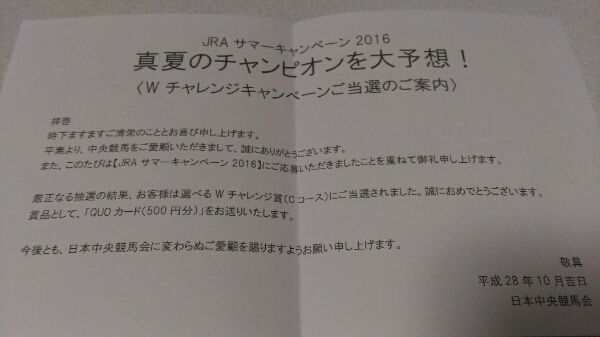 JRA サマーキャンペーン 2016
真夏のチャンピオンを大予想！
〈W チャレンジキャンペーンご当選のご案内〉
拝啓
時下ますますご清栄のこととお喜び申し上げます。
平素より、中央競馬をご愛顧いただきまして、誠にありがとうございます。
また、このたびは【JRA サマーキャンペーン 2016】にご応募いただきましたことを重ねて御礼申し上げます。
厳正なる抽選の結果、お客様は選べる W チャレンジ賞(C コース)にご当選されました。誠におめでとうございます。
賞品として、「QUO カード(500 円分)」をお送りいたします。
今後とも、日本中央競馬会に変わらぬご愛顧を賜りますようお願い申し上げます。
敬具
平成 28 年 10 月吉日
日本中央競馬会